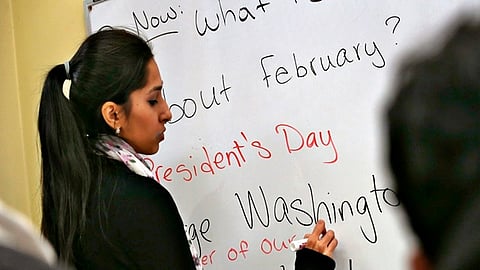 Now: What is
about February?
President's Day
Washington
of our